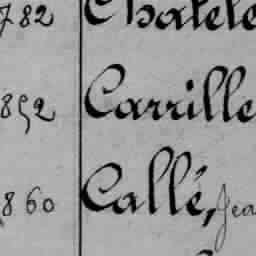 782 Chatele
852 Carrille
860 Callé, Jea